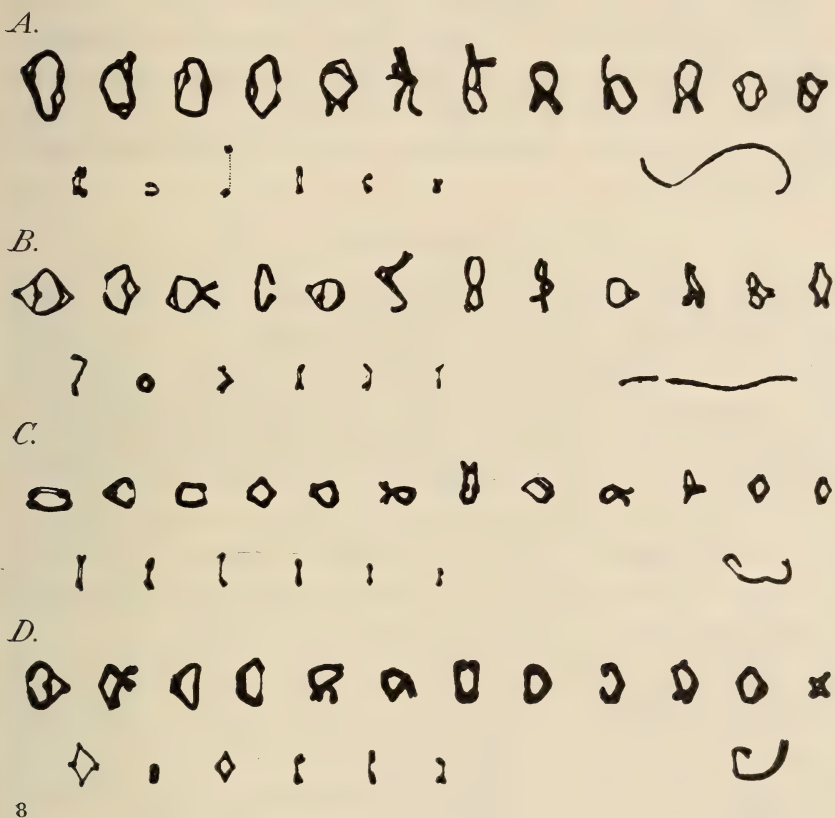 A.
B.
C.
D.
8